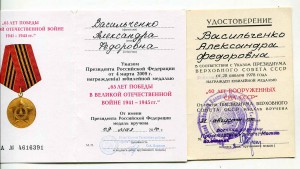 65 ЛЕТ ПОБЕДЫ
В ВЕЛИКОЙ ОТЕЧЕСТВЕННОЙ
ВОЙНЕ
1941 - 1945 гг.
А № 4616391
Васильченко
Александра
Федоровна
Указом
Президента Российской Федерации
от 4 марта 2009 г.
награжден(а) юбилейной медалью
„65 ЛЕТ ПОБЕДЫ
В ВЕЛИКОЙ ОТЕЧЕСТВЕННОЙ
ВОЙНЕ 1941-1945 гг.“
От имени
Президента Российской Федерации
медаль вручена
УДОСТОВЕРЕНИЕ
Васильченко
Александра
Федоровна
В СООТВЕТСТВИИ С УКАЗОМ ПРЕЗИДИУМА
ВЕРХОВНОГО СОВЕТА СССР
от 28 января 1978 года
НАГРАЖДЕН ЮБИЛЕЙНОЙ МЕДАЛЬЮ
„60 ЛЕТ ВООРУЖЕННЫХ
СИЛ СССР“
От имени ПРЕЗИДИУМА ВЕРХОВНОГО
СОВЕТА СССР МЕДАЛЬ ВРУЧЕНА